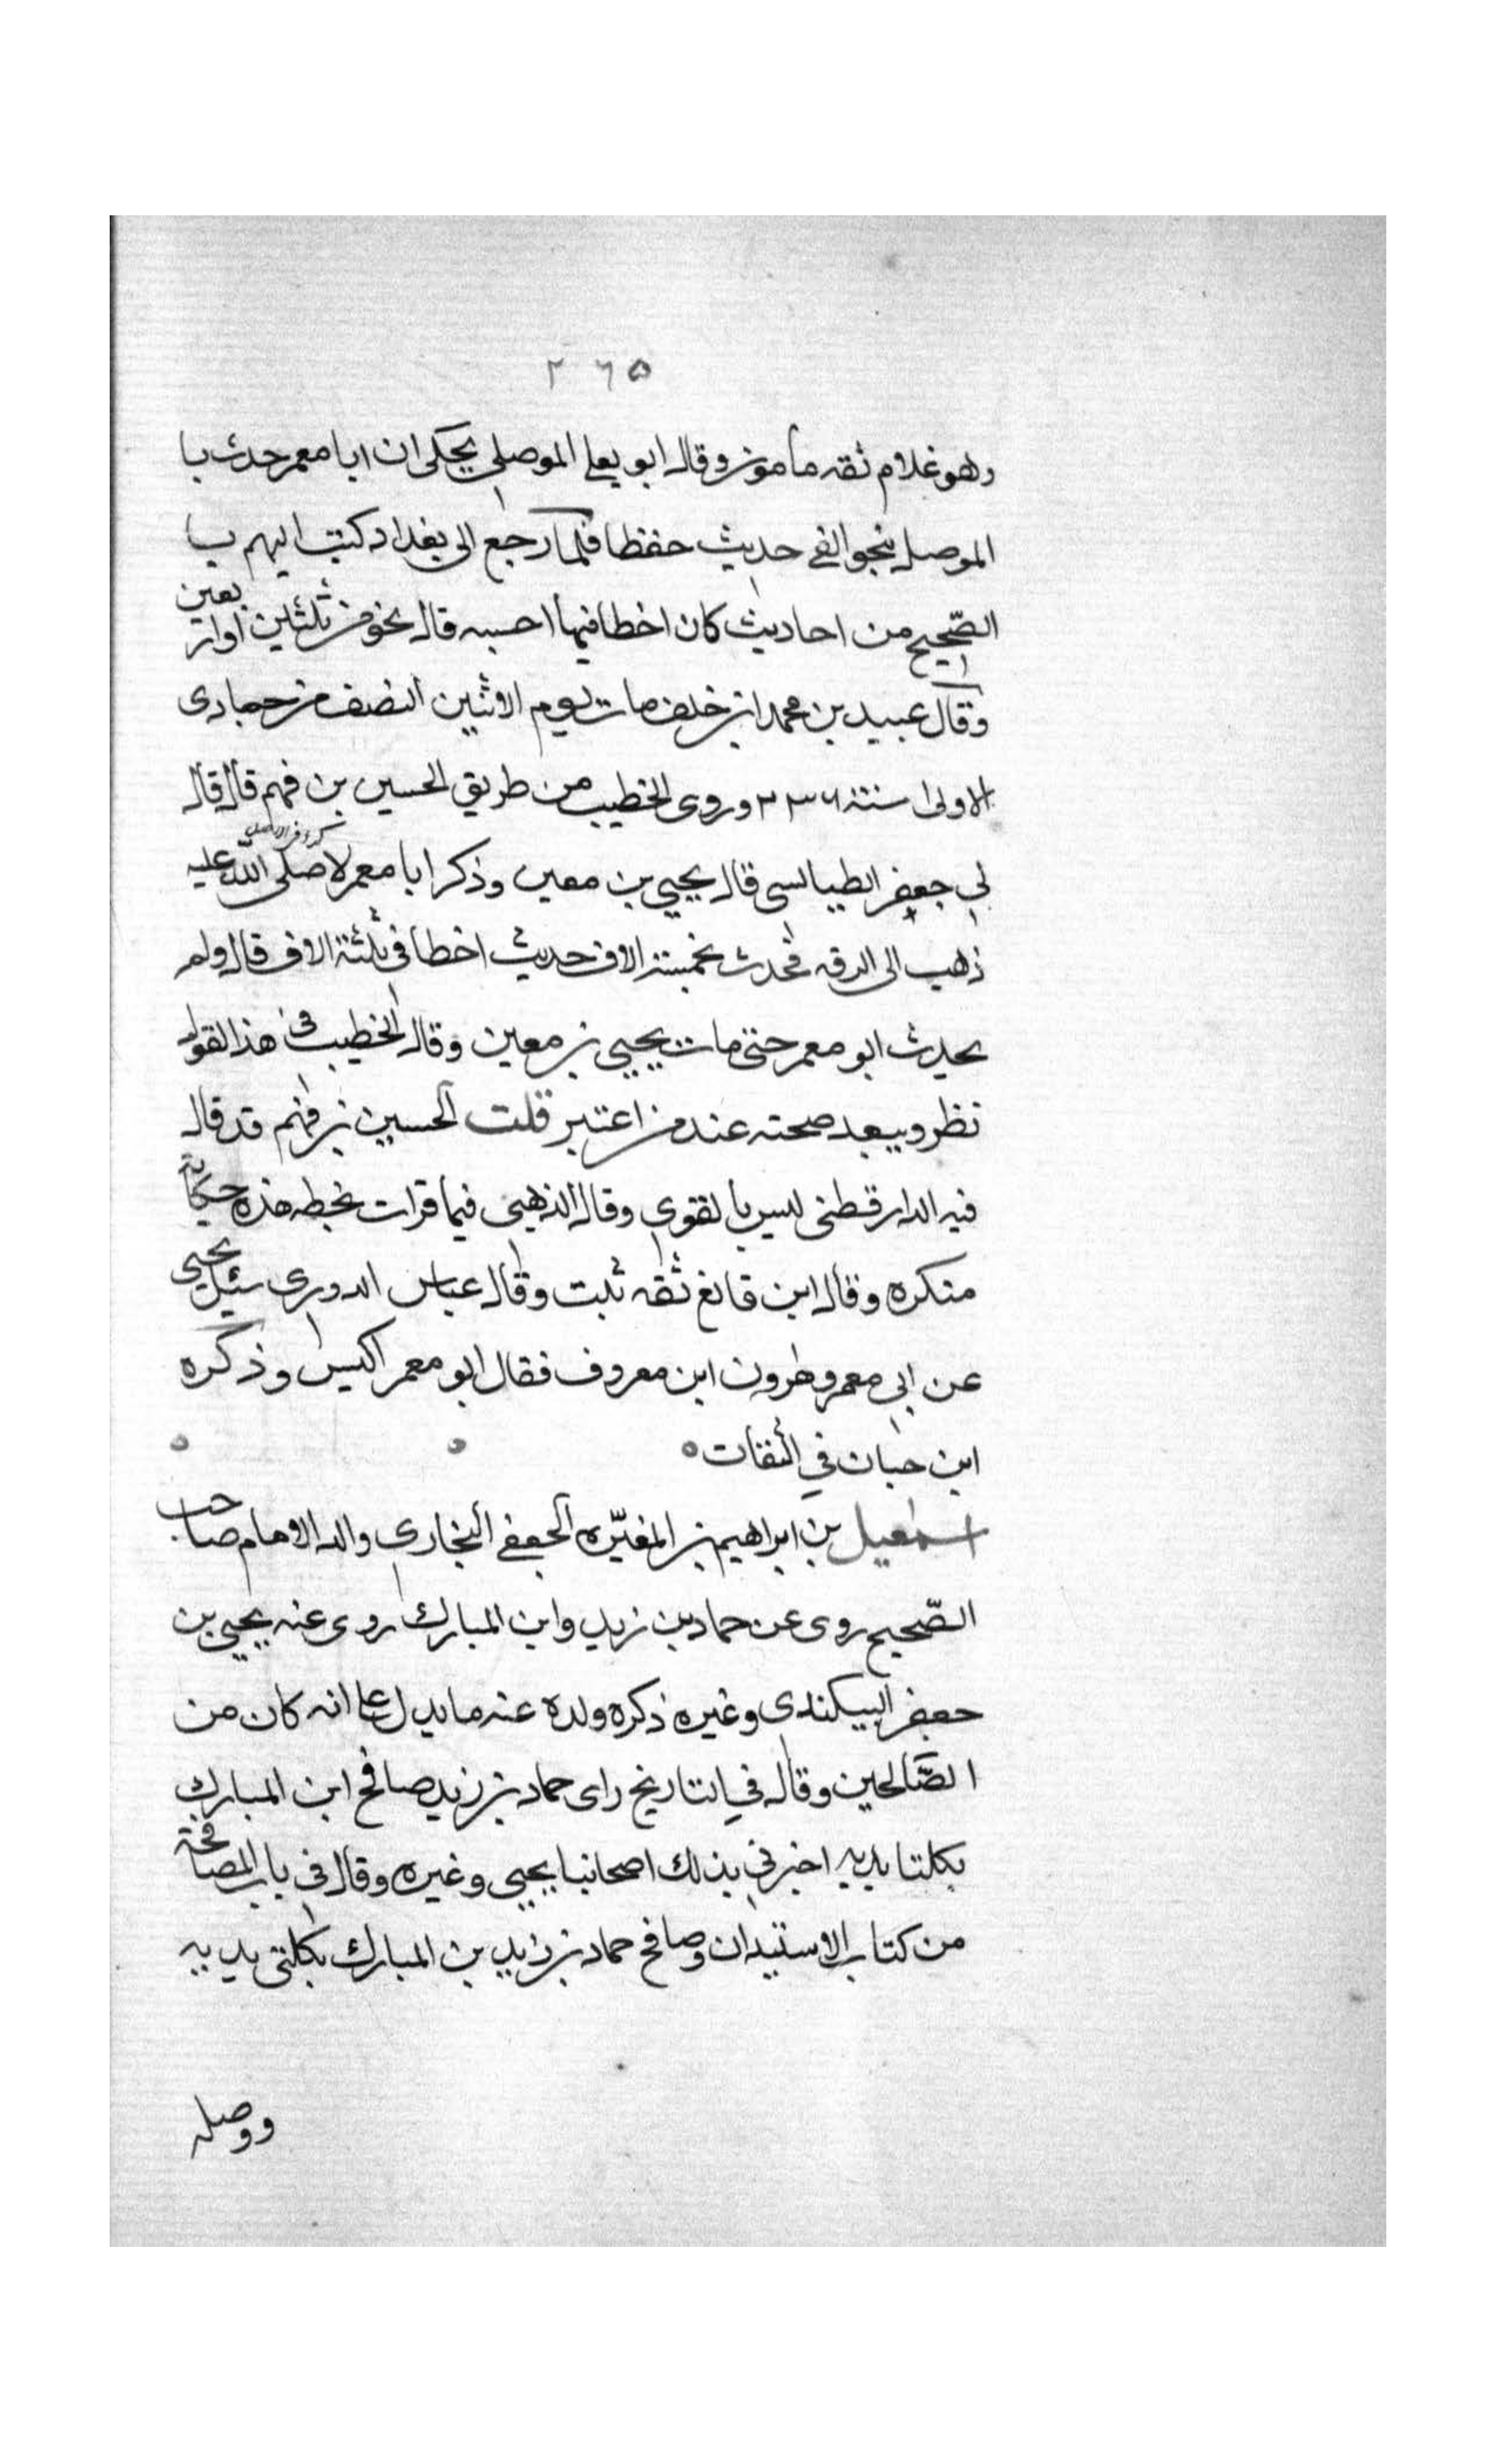 ٢٦٥
وهو غلام ثقه مامون وقال ابو يعلى الموصلي يحكى ان ابا معمر حدث با
الموصل بنحو الفى حديث حفظا فلما رجع الى بغداد كتب اليهم با
الصّحيح من احاديث كان اخطا فيها احسبه قال نحو من ثلثين او اربعين
وقال عبيد بن محمد ابن خلف مات يوم الاثنين النصف من جمادى
الاولى سنة ٢٣٦ وروى الخطيب من طريق الحسين بن فهم قال قال
لى جعفر الطيالسى قال يحيى بن معين وذكر ابا معمر لا صلى الله عليه
ذهب الى الرقه فحدث بخمسة الاف حديث اخطا فى ثلثة الاف قال ولم
يحدث ابو معمر حتى مات يحيى بن معين وقال الخطيب فى هذا القول
نظر ويبعد صحته عند من اعتبر قلت الحسين بن فهم قد قال
فيه الدارقطنى ليس بالقوى وقال الذهبى فيما قرات بخطه هذه حكاية
منكره وقال ابن قانع ثقه ثبت وقال عباس الدورى سئل يحيى
عن ابى معمر وهرون ابن معروف فقال ابو معمر اكيس وذكره
ابن حبان في الثقات ه
اسمعيل بن ابراهيم بن المغيّره الجعفى البخارى والد الامام صاحب
الصّحيح روى عن حماد بن زيد وابن المبارك روى عنه يحيى بن
جعفر البيكندى وغيره ذكره ولده عنه ما يدل على انه كان من
الصّالحين وقال في التاريخ راى حماد بن زيد صافح ابن المبارك
بكلتا يديه اخبرنى بذلك اصحابنا يحيى وغيره وقال فى باب المصافحة
من كتاب الاستيدان وصافح حماد بن زيد بن المبارك بكلتى يديه
ووصله